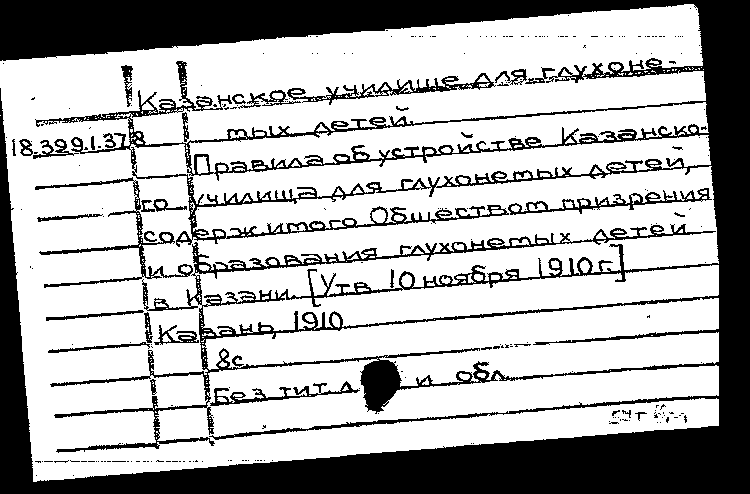 Казанское училище для глухоне-
18.399.1.378 мых детей.
Правила об устройстве Казанско-
го училища для глухонемых детей,
содержимого Обществом призрения
и образования глухонемых детей
в Казани. [Утв 10 ноября 1910 г.]
Казань, 1910
8с.
Без тит. л и обл.